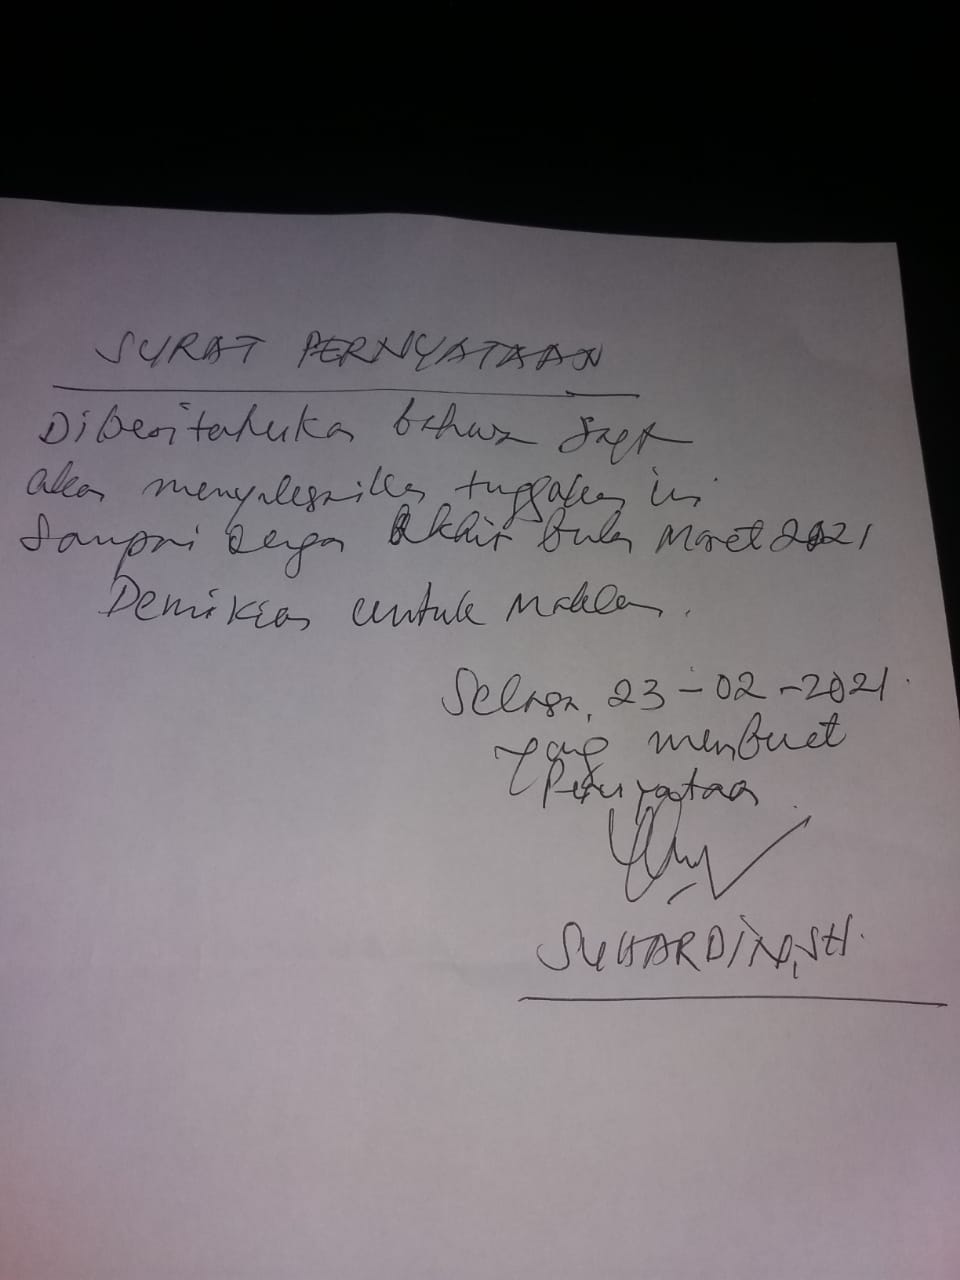 SURAT PERNYATAAN
Diberitahukan bahwa saya
akan menyelesaikan tunggakan ini
sampai dengan akhir bulan Maret 2021
Demikian untuk maklum.
Selasa, 23-02-2021.
Yang membuat
Pernyataan
SUHARDIN, SH.